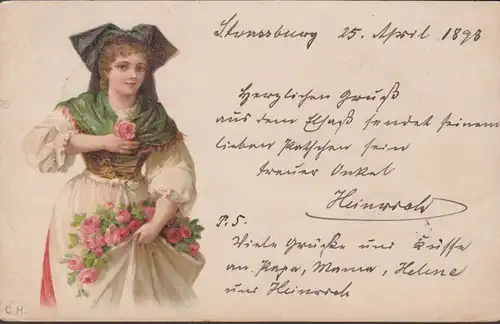 Strassburg 25. April 1898
Herzlichen Gruß
aus dem Elsaß sendet seinem
lieben Patchen sein
treuer Onkel
Heinrich
P.S.
Viele Grüße und Küsse
an Papa, Mama, Helene
und Heinrich
C.H.